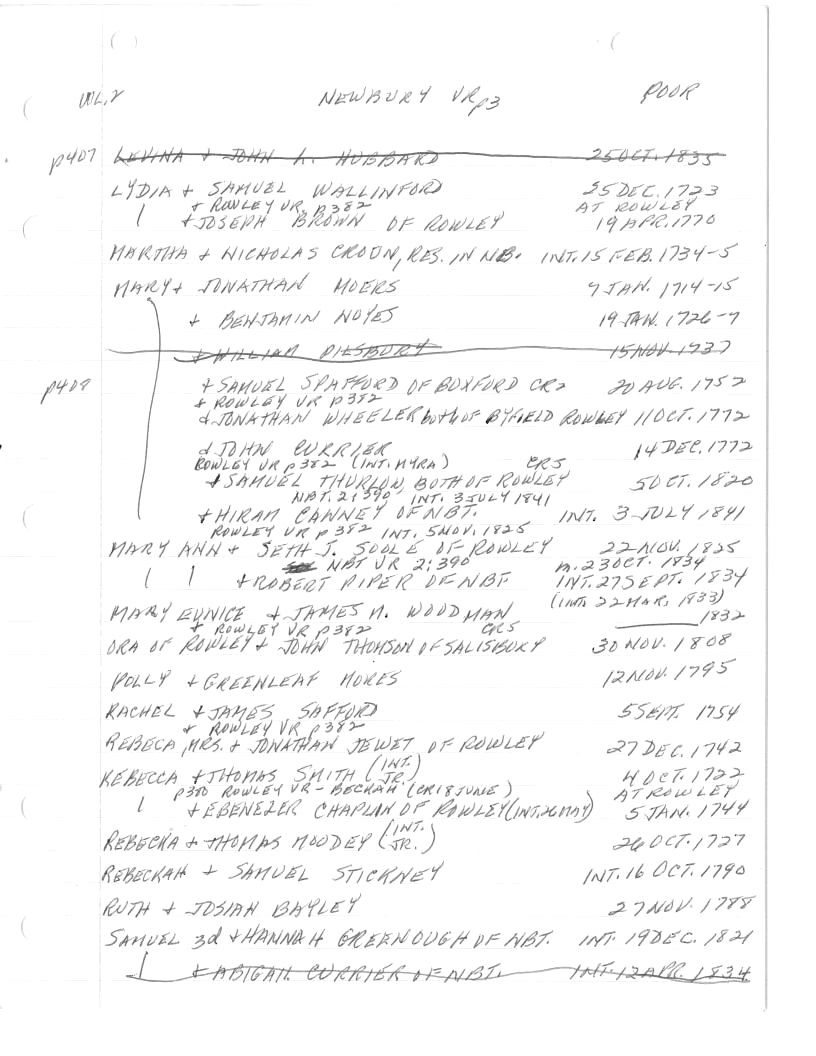 VOL. 2 NEWBURY VR p3 POOR
p407 LEVINA + JOHN A. HUBBARD 25 OCT. 1835
LYDIA + SAMUEL WALLINFORD 25 DEC. 1723
+ ROWLEY VR p382 AT ROWLEY
+ JOSEPH BROWN OF ROWLEY 19 APR. 1770
MARTHA + NICHOLAS CROUN, RES. IN NB. INT. 15 FEB. 1734-5
MARY + JONATHAN MOERS 7 JAN. 1714-15
+ BENJAMIN NOYES 19 JAN. 1726-7
+ WILLIAM PILSBURY 15 NOV 1737
p408 + SAMUEL SPAFFORD OF BOXFORD CR2 20 AUG. 1752
+ ROWLEY VR p382
+ JONATHAN WHEELER both OF BYFIELD ROWLEY 11 OCT. 1772
+ JOHN CURRIER 14 DEC. 1772
ROWLEY VR p382 (INT. MYRA) CR5
+ SAMUEL THURLOW, BOTH OF ROWLEY 5 OCT. 1820
NBT. 2:390 INT. 3 JULY 1841
+ HIRAM CAWNEY OF NBT. INT. 3 JULY 1841
ROWLEY VR p382 INT. 5 NOV. 1825
MARY ANN + SETH J. SOOLE OF ROWLEY 22 NOV. 1825
NBT VR 2:390 m. 23 OCT. 1834
+ ROBERT PIPER OF NBT INT. 27 SEPT. 1834
(INT. 22 MAR. 1833)
MARY EUNICE + JAMES N. WOODMAN 1832
+ ROWLEY VR p382 CR5
ORA OF ROWLEY + JOHN THOMSON OF SALISBURY 30 NOV. 1808
POLLY + GREENLEAF MORES 12 NOV. 1795
RACHEL + JAMES SAFFORD 5 SEPT. 1754
+ ROWLEY VR p382
REBECA, MRS. + JONATHAN JEWET OF ROWLEY 27 DEC. 1742
REBECCA + THOMAS SMITH (INT. JR.) 4 OCT. 1722
p380 ROWLEY VR - BECKAH (CR1 8 JUNE) AT ROWLEY
+ EBENEZER CHAPLAN OF ROWLEY (INT. 26 MAY) 5 JAN. 1744
REBECKA + THOMAS MOODEY (INT. JR.) 26 OCT. 1727
REBECKAH + SAMUEL STICKNEY INT. 16 OCT. 1790
RUTH + JOSIAH BAYLEY 27 NOV. 1788
SAMUEL 3d + HANNAH GREENOUGH OF NBT. INT. 19 DEC. 1821
+ ABIGAIL CURRIER OF NBT. INT. 12 APR. 1834